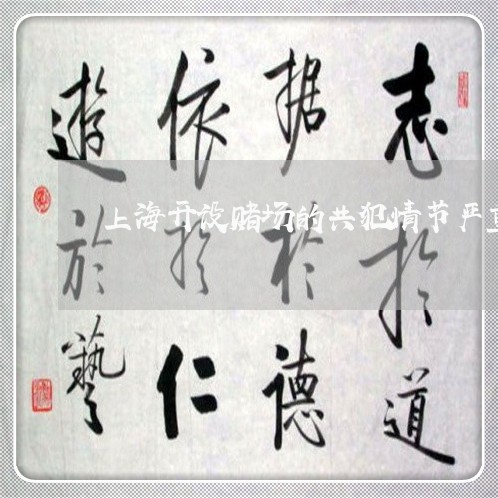 志扵道
据扵德
依扵仁
遊於藝
上海开设赌场的共犯情节严